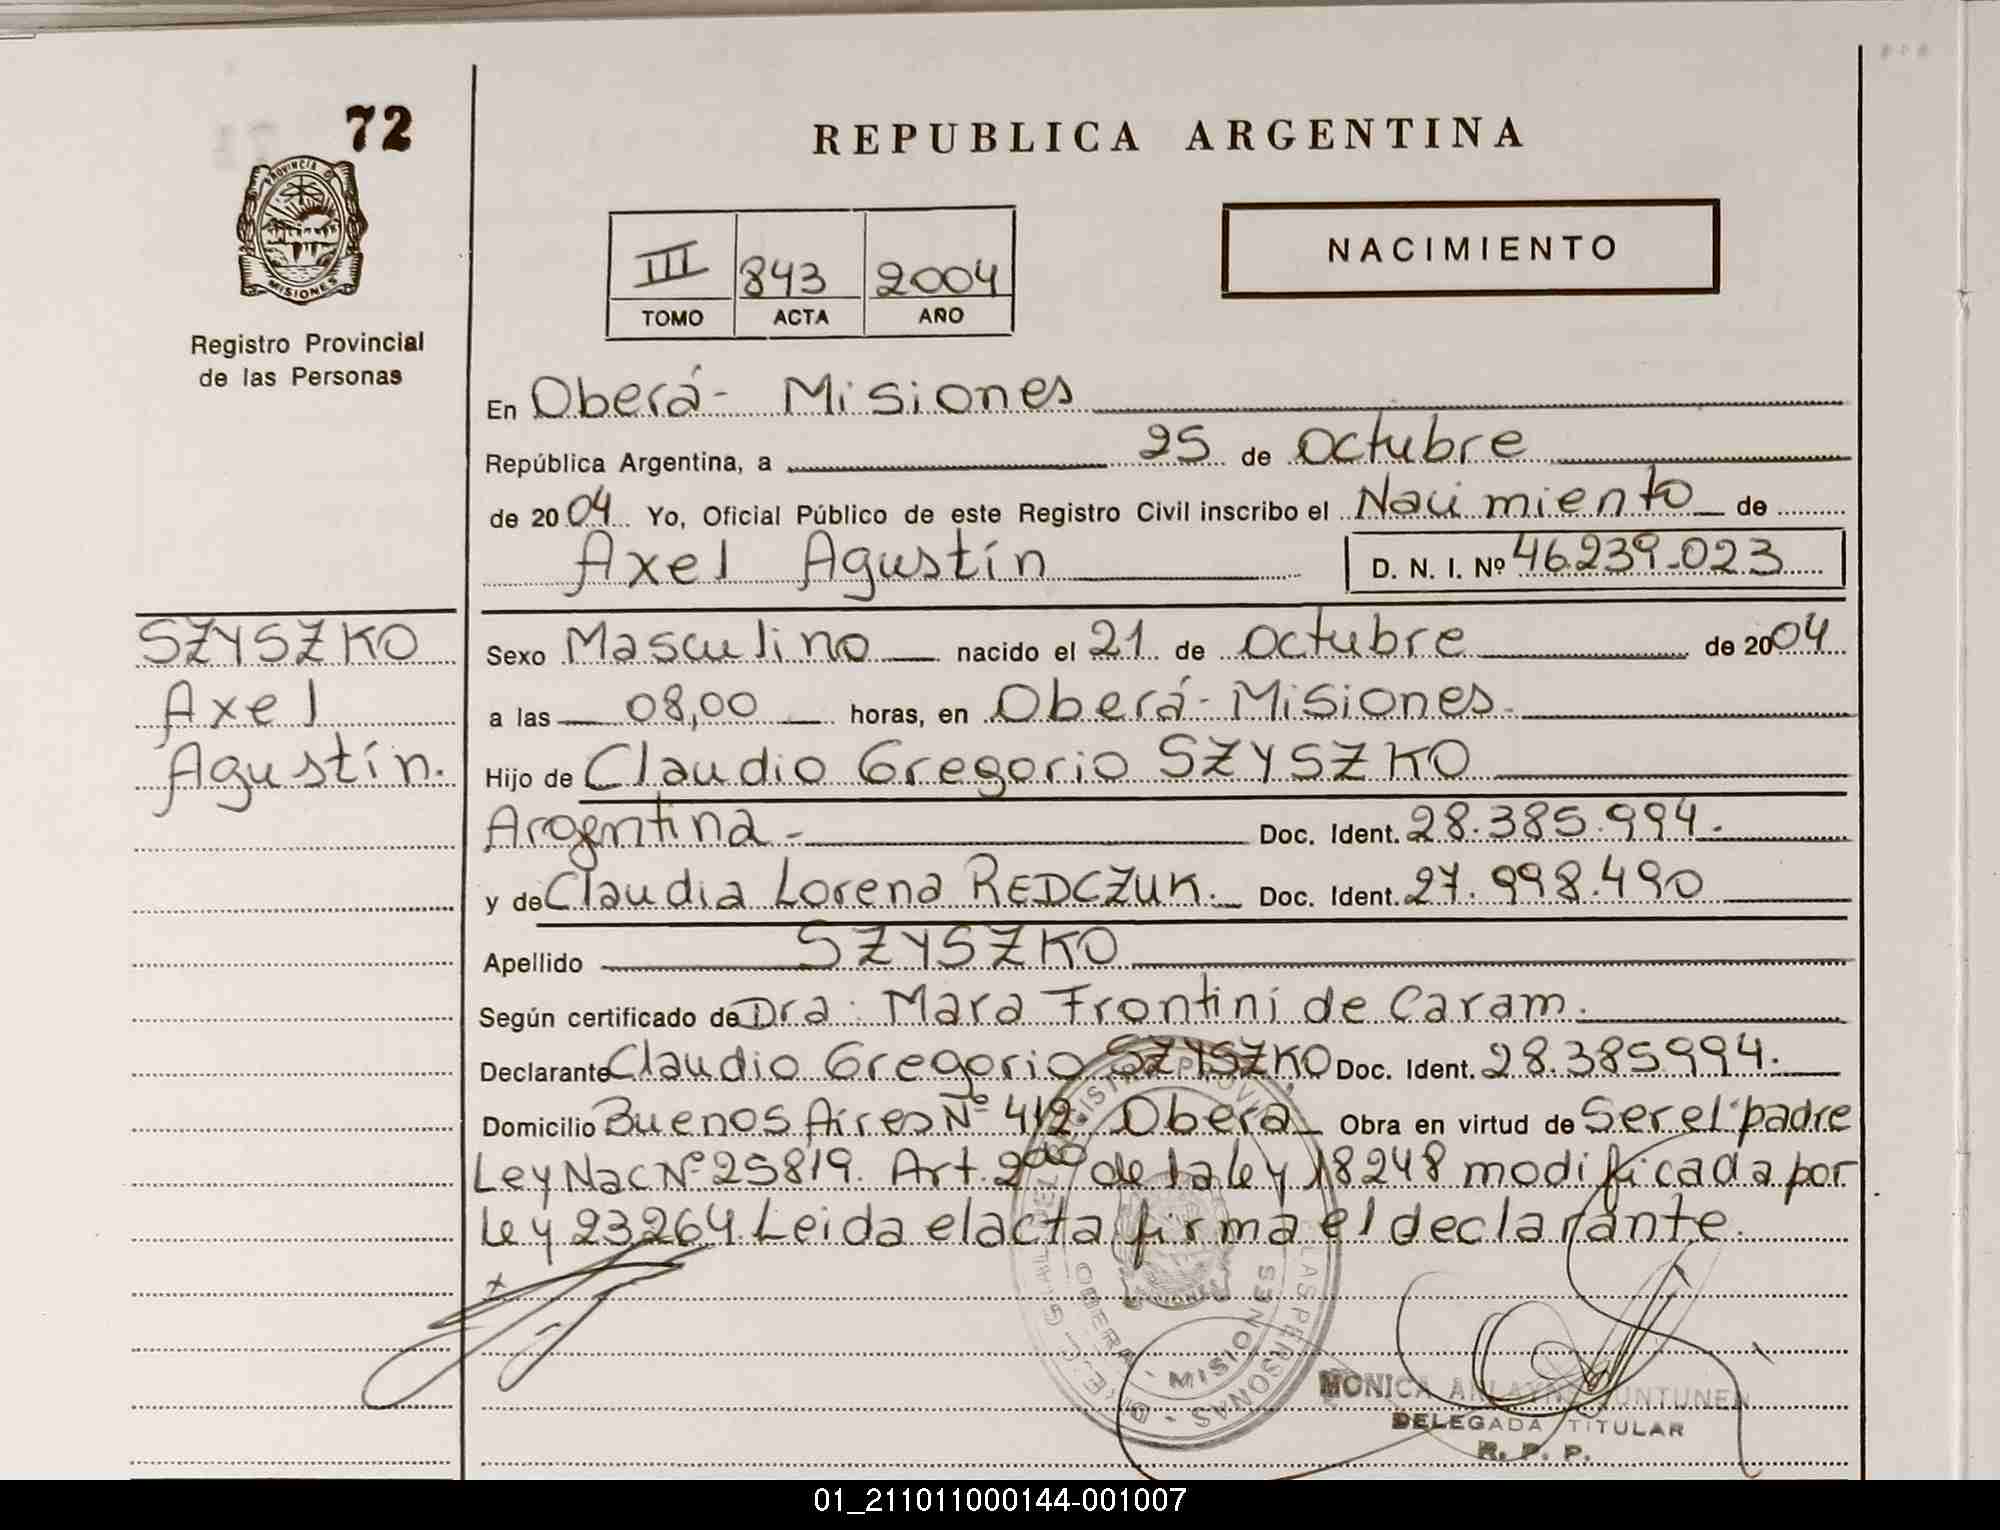 72
PROVINCIA DE
MISIONES
Registro Provincial
de las Personas
REPUBLICA ARGENTINA
III 843 2004
TOMO ACTA AÑO
NACIMIENTO
En Oberá - Misiones
República Argentina, a 25 de Octubre
de 2004 Yo, Oficial Público de este Registro Civil inscribo el Nacimiento de
Axel Agustín D. N. I. Nº 46.239.023
SZYSZKO
Axel
Agustín.
Sexo Masculino nacido el 21 de Octubre de 2004
a las 08,00 horas, en Oberá - Misiones.
Hijo de Claudio Gregorio SZYSZKO
Argentina - Doc. Ident. 28.385.994.
y de Claudia Lorena REDCZUK. Doc. Ident. 27.998.490
Apellido SZYSZKO
Según certificado de Dra. Mara Frontini de Caram.
Declarante Claudio Gregorio SZYSZKO Doc. Ident. 28.385994.
Domicilio Buenos Aires Nº 412. Oberá Obra en virtud de Ser el padre
Ley Nac Nº 25819. Art. 2do de la ley 18248 modificada por
ley 23264. Leida el acta firma el declarante.
x
OBERA - MISIONES
LAS PERSONAS
MONICA
DELEGADA TITULAR
R. P. P.
01_211011000144-001007